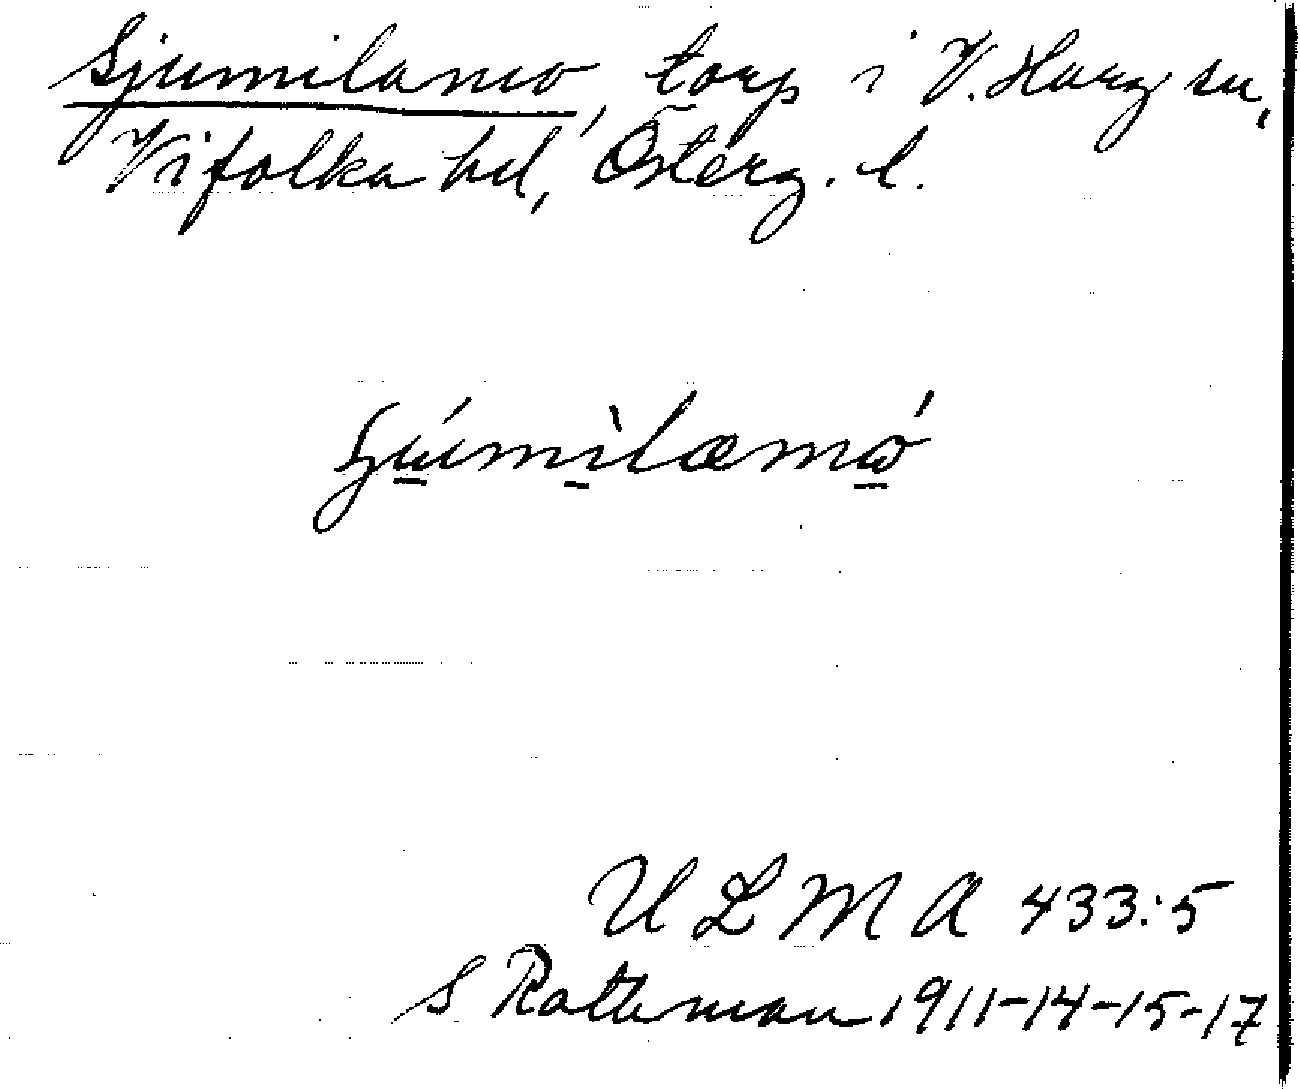 Sjumilamo, torp i V. Harg sn,
Vifolka hd, Österg. l.
U L M A 433:5
S Rothman 1911-14-15-17